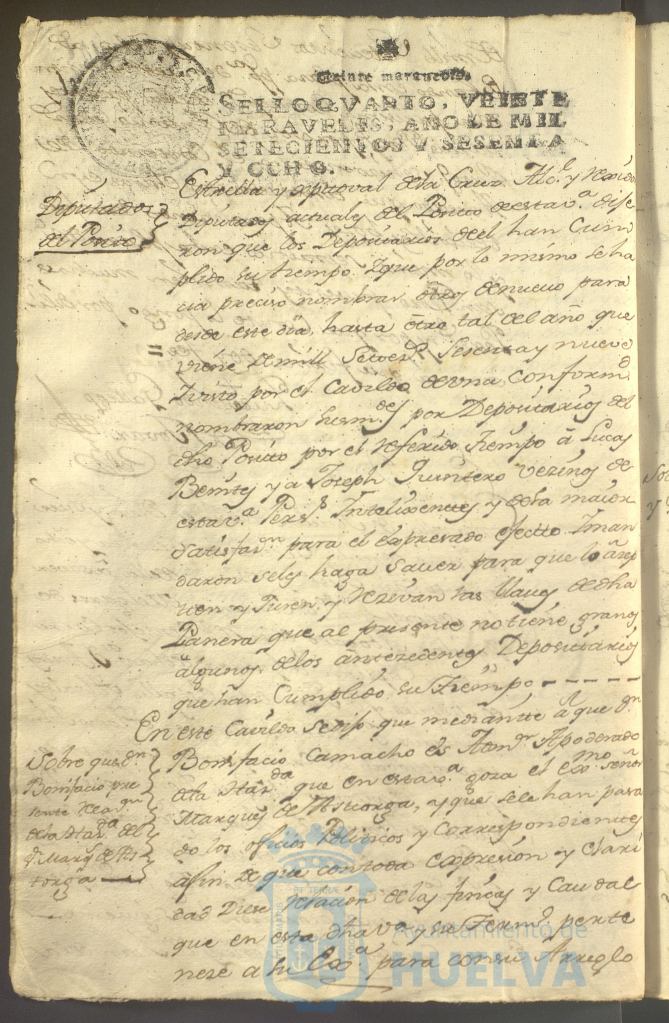 Veinte maravedis.
SELLO QVARTO, VEINTE
MARAVEDIS, AÑO DE MIL
SETECIENTOS Y SESENTA
Y OCHO.
Diputados
del Posito
Estrella y de la Cruz Alc.e y
Diputados actuales del Posito de esta v.a dije
ron que los Depositarios de el han Cum
plido su tiempo. Y que por lo mismo se ha
cia preciso nombrar otros de nuevo para
desde este dia, hasta otro tal del año que
viene de mill Setez.s Sesenta y nueve
Y visto por el Cavildo de una conformd.
nombraron por Depositarios del
dho Posito por el referido tiempo à Lucas
Benites y a Joseph Quintero vezinos de
esta v.a Pers.s Intelixentes y de la maior
Satisfaz.n para el expresado efecto Iman
daron seles haga Saver para que lo azep
ten y Juren, y rezivan las llaves de dha
Panera que al presente no tiene granos
algunos, de los antezedentes Depositarios
que han Cumplido su Tiempo
En este Cavildo se dijo que mediante à que d.n
Bonifacio Camacho es Apoderado
dela Haz.da que en esta v.a goza el exmo señor
Marques de Astorga, y que sele han pasa
do los oficios Politicos y Correspondientes
afin de que con toda expresion y clari
dad Diese relacion delas fincas y Caudal
que en esta dha v.a y su Term.o perte
neze a su Ex.a para con su Arreglo
Sobre que d.n
Bonifacio pre
sente
dela Haz.da del
S. Marq.s de As
torga
Ayuntamiento de
HUELVA